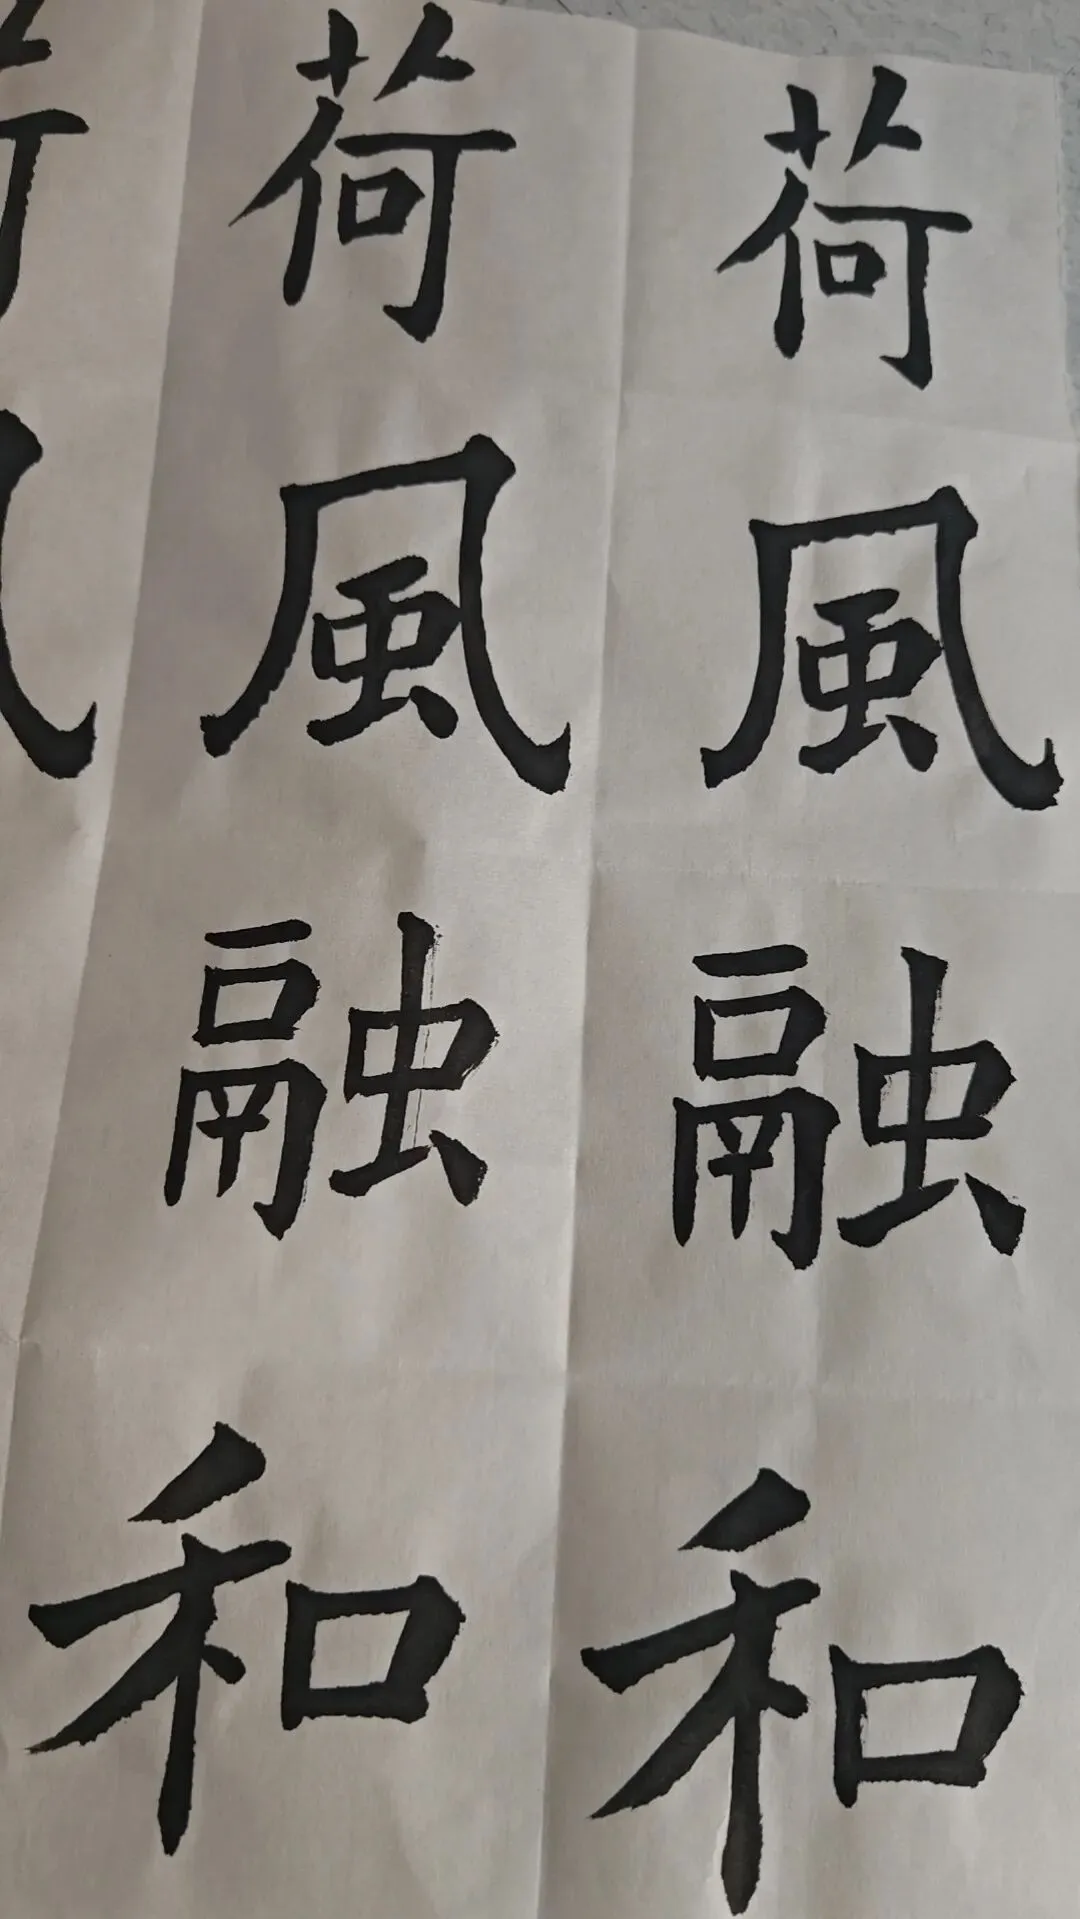 荷風融和
荷風融和